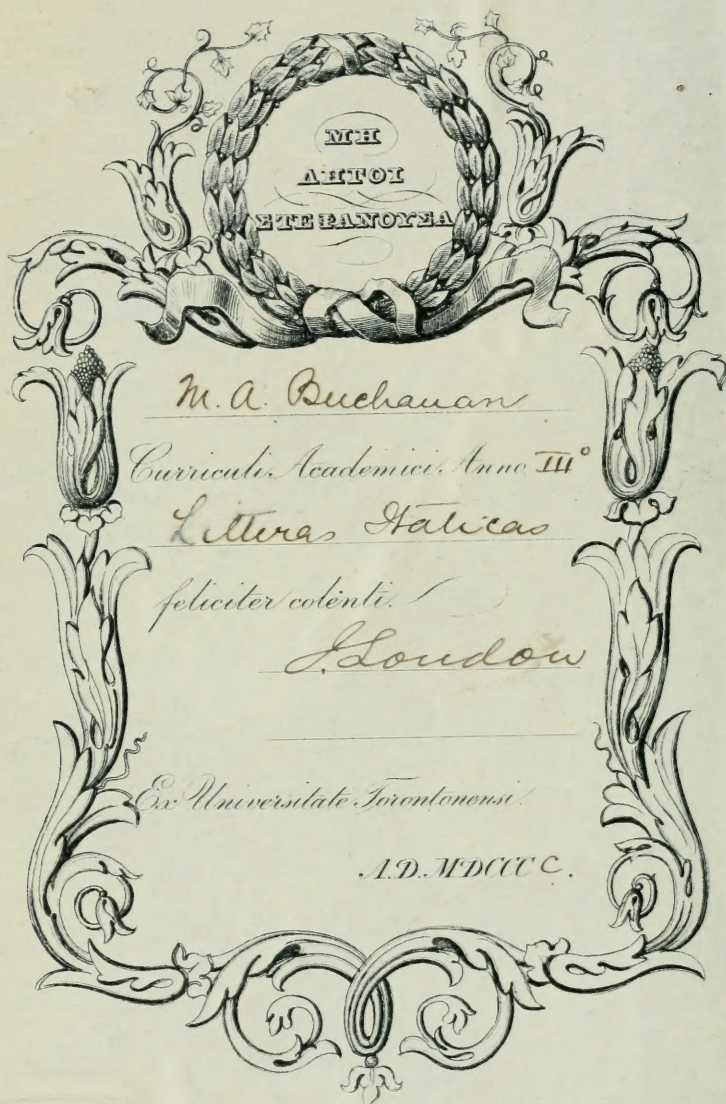 ΜΗ
ΛΗΓΟΙ
ΣΤΕΦΑΝΟΥΣΑ
M. A. Buchanan
Curriculi Academici Anno IIIº
Litteras Italicas
feliciter colenti.
J. Loudon
Ex Universitate Torontonensi
A.D. MDCCCC.